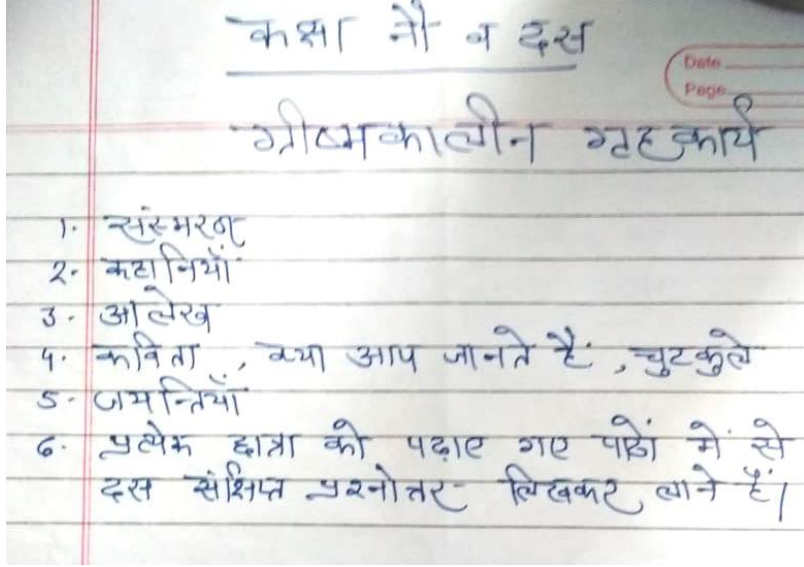 कक्षा नौ व दस
Date
Page
ग्रीष्मकालीन गृहकार्य
1. संस्मरण
2. कहानियाँ
3. आलेख
4. कविता, क्या आप जानते हैं, चुटकुले
5. जयन्तियाँ
6. प्रत्येक छात्रा को पढ़ाए गए पाठों में से
दस संक्षिप्त प्रश्नोत्तर लिखकर लाने हैं।